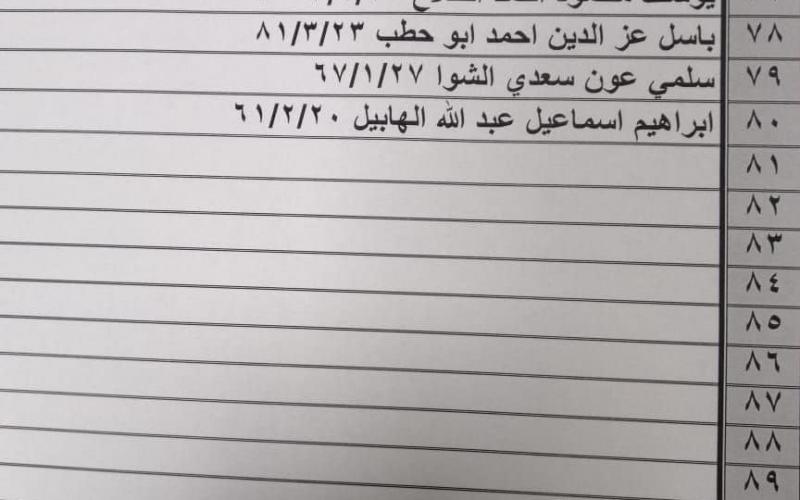 ٧٨ باسل عز الدين احمد ابو حطب ٨١/٣/٢٣
٧٩ سلمي عون سعدي الشوا ٦٧/١/٢٧
٨٠ ابراهيم اسماعيل عبد الله الهابيل ٦١/٢/٢٠
٨١
٨٢
٨٣
٨٤
٨٥
٨٦
٨٧
٨٨
٨٩